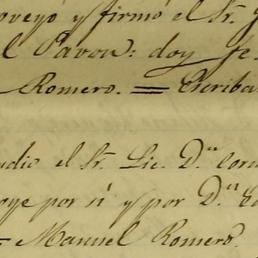 oveyó y firmó el Sr. J
l Pavon: doy fe.
Romero. = Escriba
udio el Sr. Lic. Dn.
oye por sí y por Dn.
= Manuel Romero.